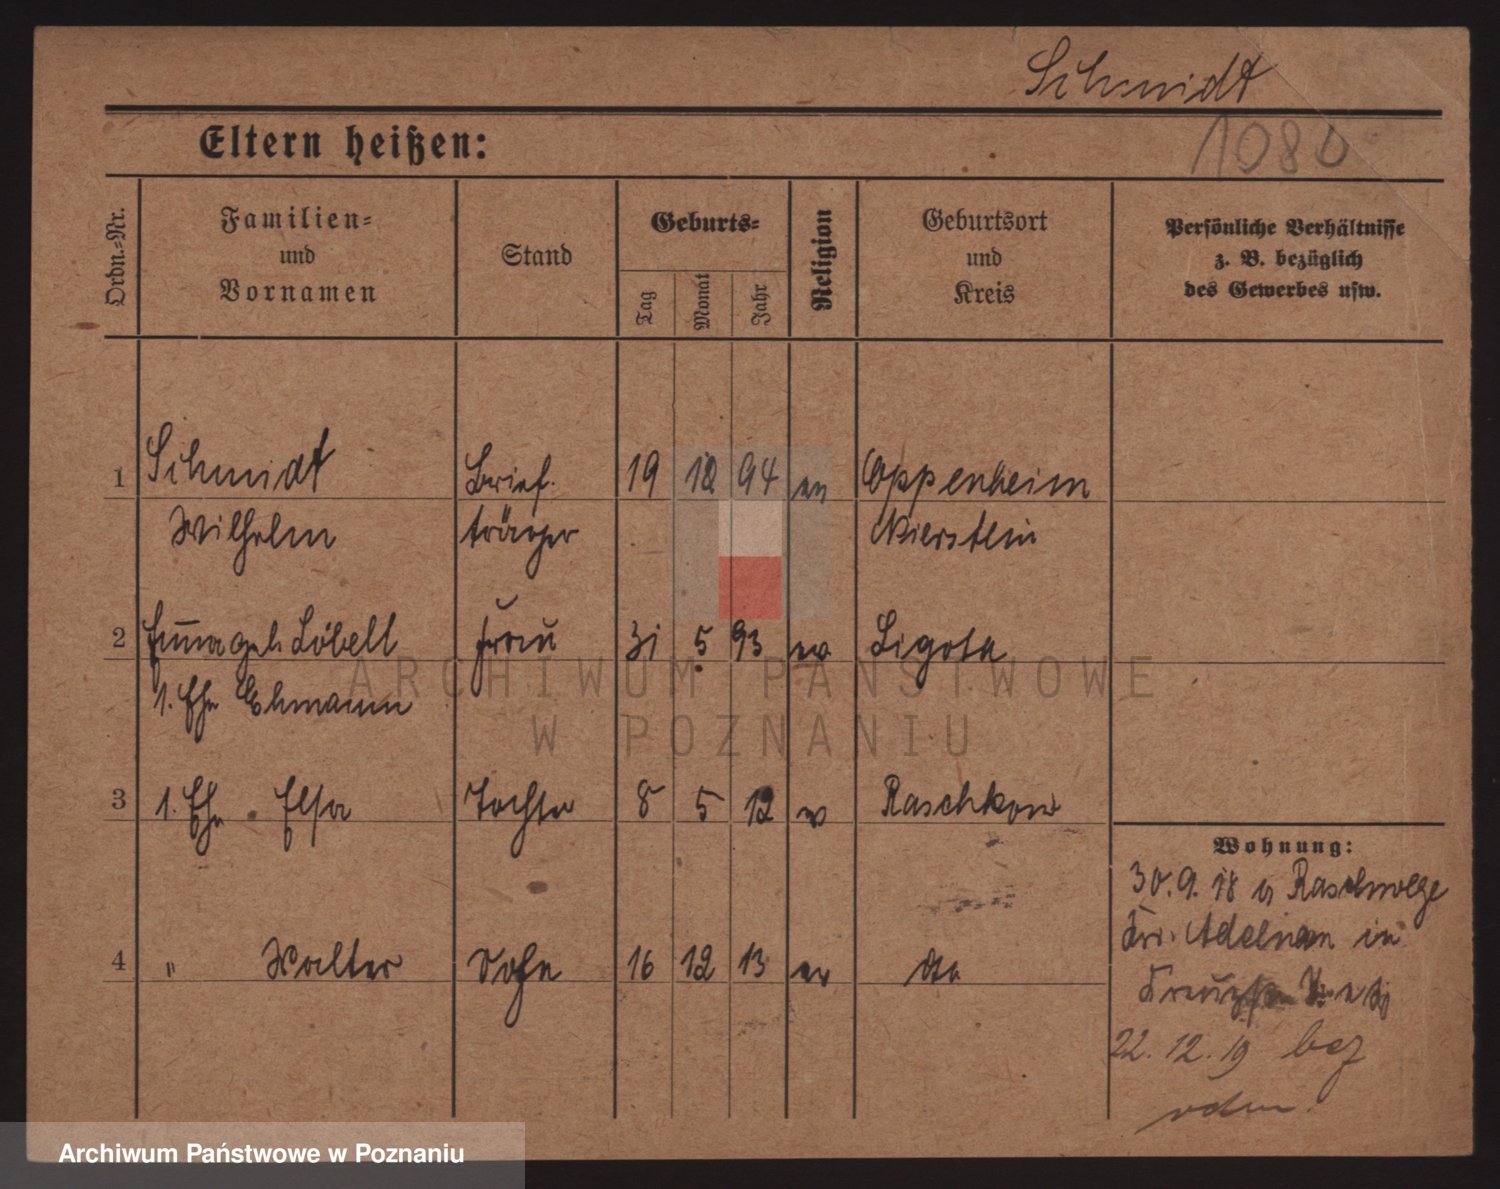 Schmidt
Eltern heißen:
1080
Ordn.-Nr.
Familien-
und
Vornamen
Stand
Geburts-
Tag
Monat
Jahr
Religion
Geburtsort
und
Kreis
Persönliche Verhältnisse
z. B. bezüglich
des Gewerbes usw.
1 Schmidt Brief. 19 12 94 ev Oppenheim
Wilhelm träger Nierstein
2 Emma geb Löbelt Frau 31 5 93 ev Ligota
1. Ehe Ehmann
3 1. Ehe Elsa Tochter 8 5 12 ev Raschkow
Wohnung:
30.9.18 Raschwege
Kr. Adelnau in
4 " Walter Sohn 16 12 13 ev do
22.12.19
ARCHIWUM PAŃSTWOWE
W POZNANIU
Archiwum Państwowe w Poznaniu